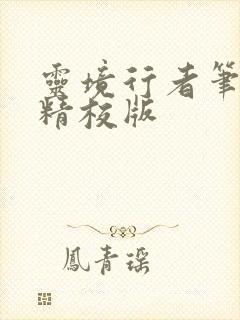 靈境行者筆
精校版
鳳青瑶